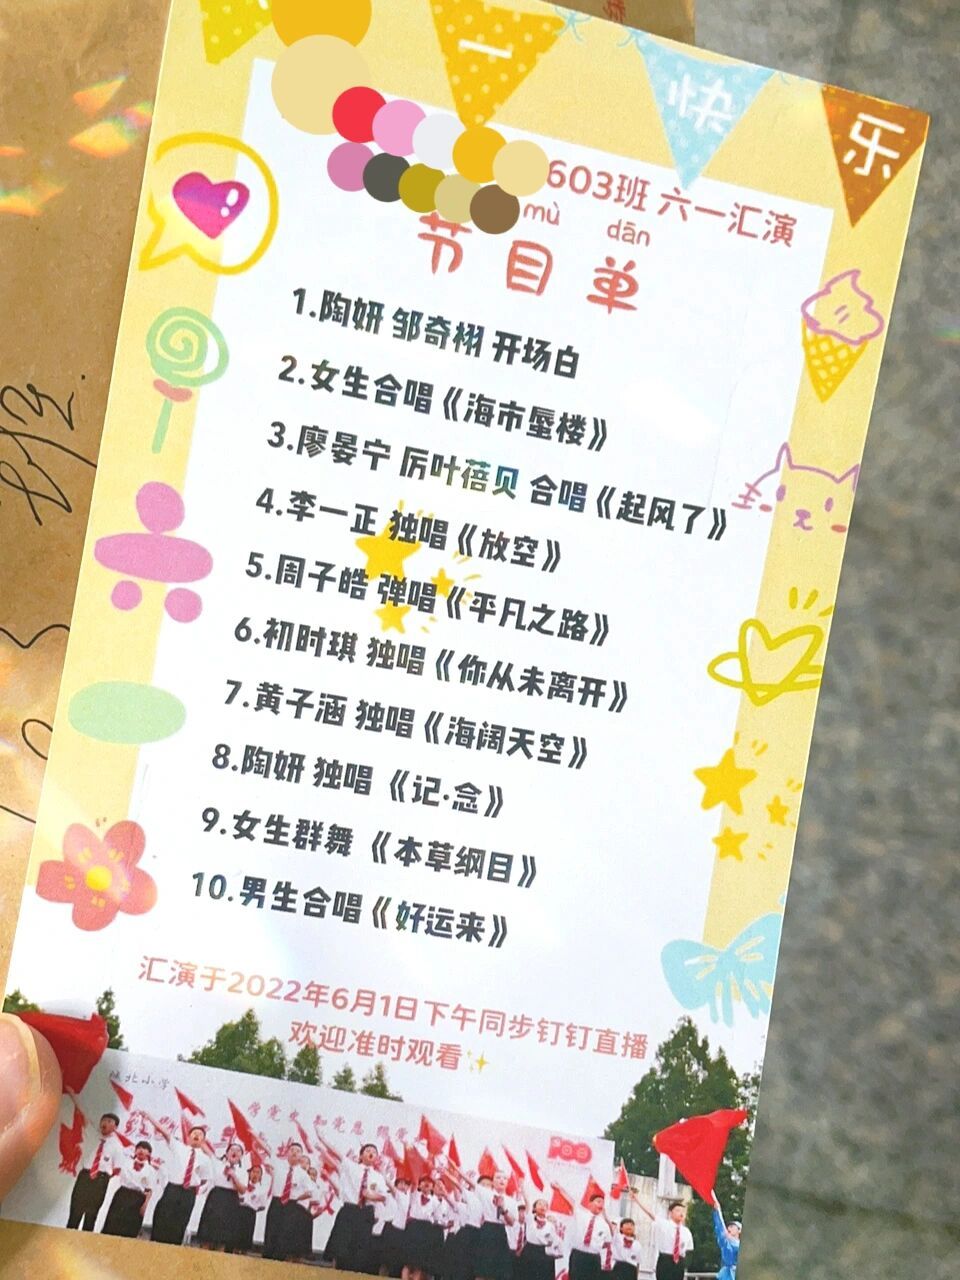 一 快 乐
603班 六一汇演
mù dān
节目单
1.陶妍 邹奇栩 开场白
2.女生合唱《海市蜃楼》
3.廖晏宁 厉叶蓓贝 合唱《起风了》
4.李一正 独唱《放空》
5.周子皓 弹唱《平凡之路》
6.初时琪 独唱《你从未离开》
7.黄子涵 独唱《海阔天空》
8.陶妍 独唱 《记·念》
9.女生群舞 《本草纲目》
10.男生合唱《好运来》
汇演于2022年6月1日下午同步钉钉直播
欢迎准时观看
北小学
学党史 知党恩